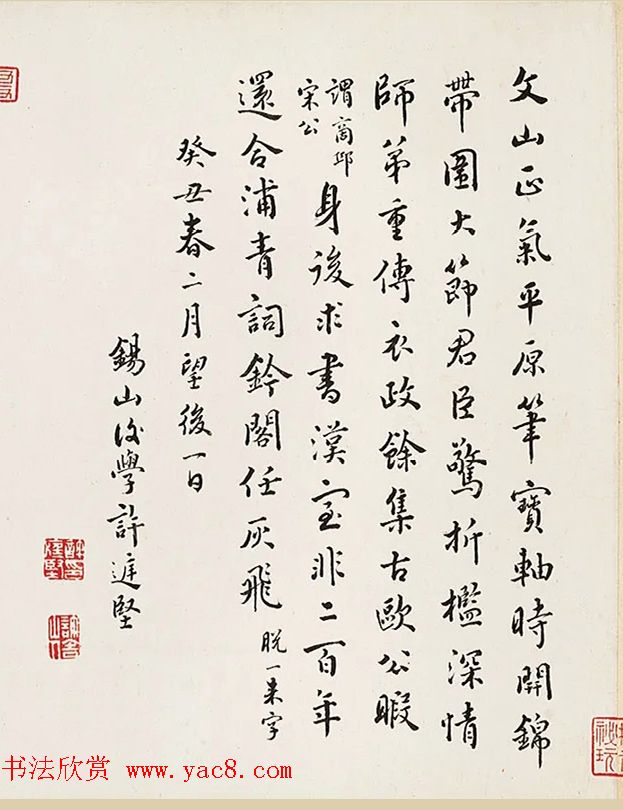 文山正氣平原筆寶軸時開錦
帶圍大節君臣驚折檻深情
師弟重傳衣政餘集古歐公暇
謂商邱
宋公
身後求書漢室非二百年
還合浦青詞鈐閣任灰飛
脫一来字
癸丑春二月望後一日
錫山後學許庭堅
书法欣赏 www.yac8.com